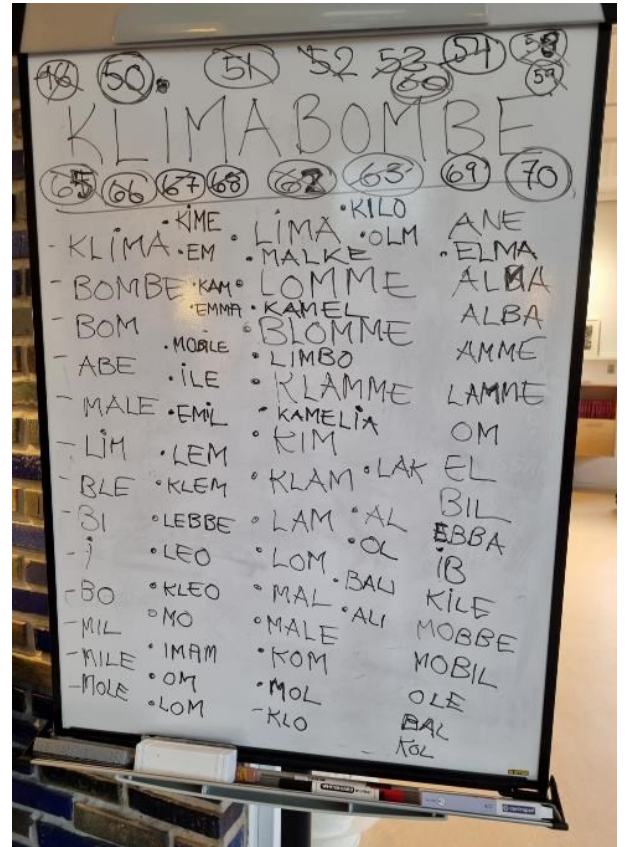 46 50. 51 52 53 54 58
60 59
KLIMABOMBE
65 66 67 68 62 63 69 70
- KLIMA
- BOMBE
- BOM
- ABE
- MALE
- LIM
- BLE
- BI
- I
- BO
- MIL
- MILE
- MOLE
• KIME
• EM
• KAM
• EMMA
• MOBILE
• ILE
• EMIL
• LEM
• KLEM
• LEBBE
• LEO
• KLEO
• MO
• IMAM
• OM
• LOM
• LIMA
• MALKE
• LOMME
• KAMEL
• BLOMME
• LIMBO
• KLAMME
• KAMELIA
• KIM
• KLAM
• LAM
• LOM
• MAL
• MALE
• KOM
• MOL
- KLO
• KILO
• OLM
• LAK
• AL
• OL
• BALI
• ALI
ANE
• ELMA
ALMA
ALBA
AMME
LAMME
OM
EL
BIL
EBBA
IB
KILE
MOBBE
MOBIL
OLE
BAL
- KOL